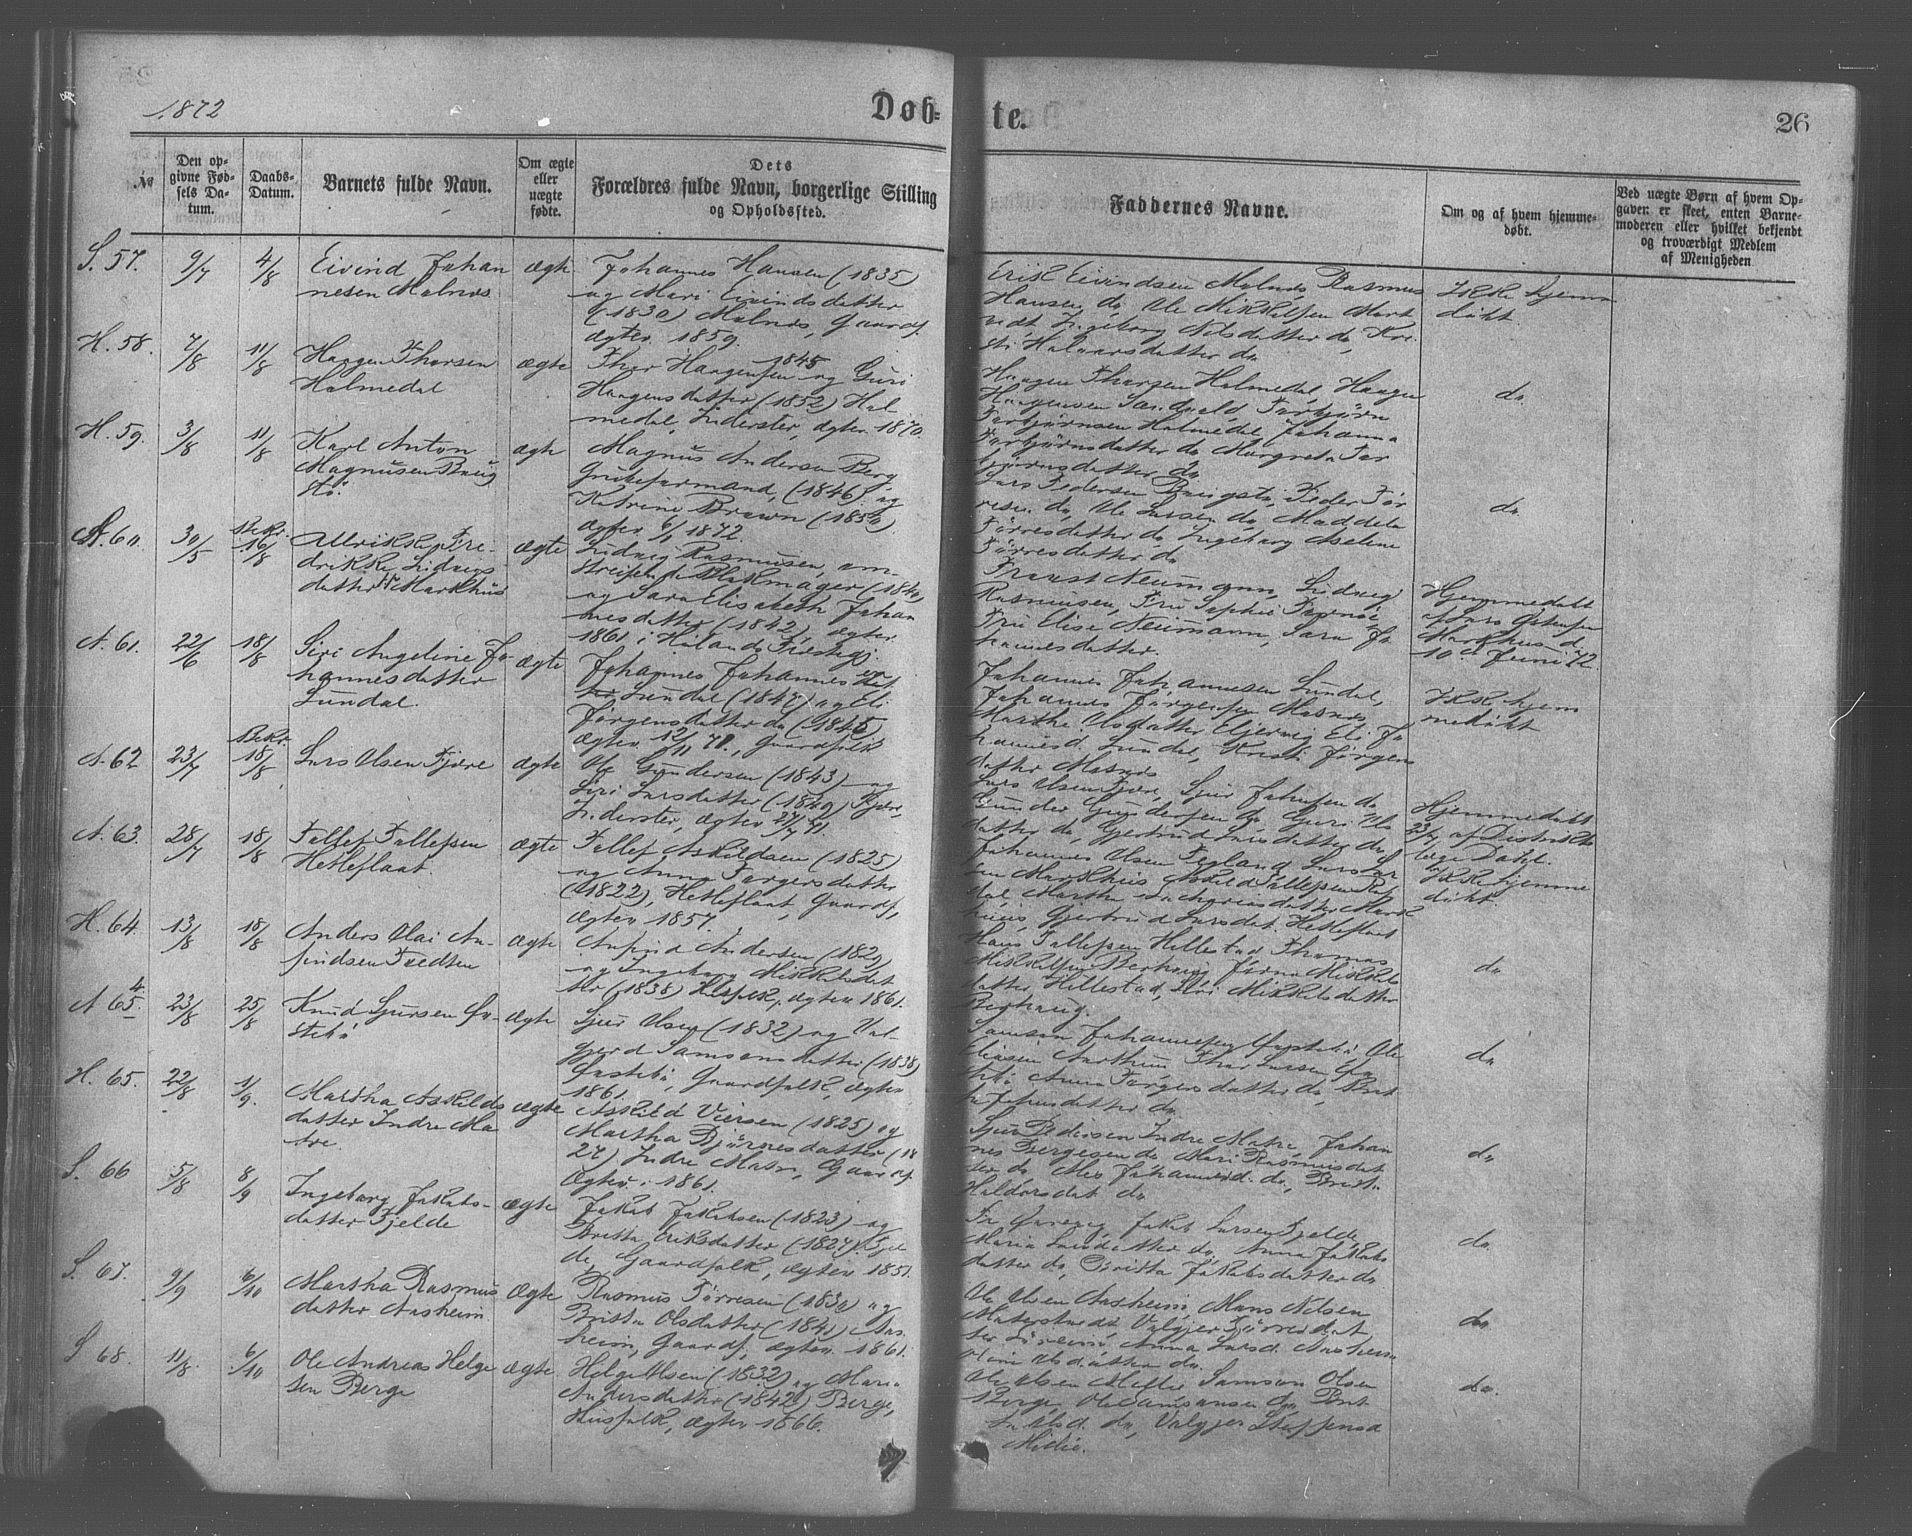 1872
Døb-
te.
26
№
Den op-
givne Fød-
sels Da-
tum.
Daabs-
Datum.
Barnets fulde Navn.
Om ægte
eller
uægte
fødte.
Dets
Forældres fulde Navn, borgerlige Stilling
og Opholdssted.
Faddernes Navne.
Om og af hvem hjemme-
døbt.
Ved uægte Børn af hvem Op-
gaven er skeet, enten Barne-
moderen eller hvilket bekjendt
og troværdigt Medlem
af Menigheden
S. 57.
9/7
4/8
Eivind Johan
nesen Malnes
ægte
Johannes Hansen (1835)
og Mari Eivindsdatter
(1830) Malnes, Gaardf.
ægtev. 1859.
Erik Eivindsen Malnes, Rasmus
Hansen do, Ole Mikkelsen Mart
vedt, Ingeborg Nilsdatter do, Kri
sti Halvorsdatter do
Ikke hjemme
døbt.
H. 58.
7/8
11/8
Haagen Thorsen
Holmedal
ægte
Thor Haagensen 1845 og Guri
Haagensdatter (1852) Hol
medal, Inderster, ægtev. 1870.
Haagen Thorsen Holmedal, Haagen
Haagensen Sandvold, Torbjørn
Torbjørnsen Holmedal, Johanna
Torbjørnsdatter do, Margreta Tor
bjørnsdatter do
do
H. 59.
3/8
11/8
Karl Anton
Magnusen Baug
stø.
ægte
Magnus Andersen Berg
Grubeformand, (1846) og
Katrine Brown (1850)
ægtev. 6/1 1872.
Lars Pedersen Baugstø, Peder Tør
resen do, Ole Larsen do, Maddela
Tørresdatter do, Ingeborg Aseline
Tørresdatter do
do
A. 60.
30/5
Bekr.
16/8
Ullrikke Fre-
drikke Ludvigs
datter Markhus
ægte
Ludvig Rasmusen, om-
streifende Blikmager (1840)
og Sara Elisabeth Johan
nesdatter (1842), ægtev.
1861 i Hølands Præstegj.
Franst Neumann, Ludvig
Rasmusen, Fru Sophie
Fru Elise Neumann, Sara Jo
hannesdatter.
Hjemmedøbt
af Lars Ostensen
Markhus d.
10de Juni 72.
A. 61.
22/6
18/8
Siri Angeline Jo-
hannesdatter
Sundal.
ægte
Johannes Johannesen
Sundal (1847) og Eli
Jørgensdatter do (1845)
ægtev. 12/11 71., Gaardfolk
Johannes Johannesen Sundal,
Johannes Jørgensen Matnes
Marthe Olsdatter Eljervig, Eli Jo
hannesd. Sundal, Kristi Jørgens
datter Matnes
Ikke hjem
medøbt
A. 62
23/7
Bekr.
18/8
Lars Olsen Fjære
ægte
Ole Gundersen (1843) og
Siri Larsdatter (1849) Fjære,
Inderster, ægtev. 27/7 71.
Lars Olsen Fjære, Sjur Johnsen do
Gunder Gundersen do, Guri Ols
datter do, Gjertrud Larsdatter do
Hjemmedøbt
23/7 af Distrikts
læge Dahl.
A. 63.
28/7
18/8
Tollef Tollefsen
Hetleflaat
ægte
Tollef Askildsen (1825)
og Anna Torgersdatter
(1822), Hetleflaat, Gaardf.,
ægtev. 1857.
Johannes Olsen Tegland, Lars Lar
sen Markhus, Askild Tollefsen Rul
dal, Martha Sakariasdatter Mark
huus, Gjertrud Larsdat. Hetleflaat
Ikke hjemme
døbt.
H. 64.
13/8
18/8
Anders Olai An-
findsen Tvedten
ægte
Anfind Andersen (1820)
og Ingeborg Mikkelsdat
ter (1838) Husfolk, ægtev. 1861.
Hans Tollefsen Hellestad, Thomas
Mikkelsen Berhaug, Jørna Mikkels
datter, Hellestad, Siri Mikkelsdatter
Berhaug.
do
A 65.
23/8
25/8
Knud Sjursen Øv-
stebø
ægte
Sjur Olsen (1832) og Val-
gjerd Samsonsdatter (1838)
Øvstebø, Gaardfolk, ægtev
1861.
Samson Johannesen Øvstebø, Ole
Eliasen Aarthun, Thor Larsen Øv
stebø, Anna Torgersdatter do, Brit
ta Johnsdatter do
do
H. 65.
22/8
1/9.
Martha Askilds
datter Indre Ma
tre.
ægte
Askild Viersen (1825) og
Martha Bjørnesdatter (18
27) Indre Matre, Gaardf.
ægtev. 1861.
Sjur Pedersen Indre Matre, Johan
nes Bergesen do, Mari Rasmusdat
ter do, Mes Johannesd. do, Brit
Haldorsdat do
do
S. 66
5/8
8/9
Ingeborg Jakobs-
datter Fjelde
ægte
Jakob Jakobsen (1823) og
Britta Eriksdatter (1827) Fjel
de, Gaardfolk, ægtev. 1851.
Jakob Larsen Fjelde
Maria Larsdatter do, Anna Jakobs
datter do, Britta Jakobsdatter do
do.
S. 67.
9/9
6/10
Martha Rasmus
datter Aasheim
ægte
Rasmus Tørresen (1830) og
Britta Olsdatter (1841) Aas
heim, Gaardf., ægtev. 1861.
Ole Olsen Aasheim, Mons Nilsen
Valgjer Tørresdat
ter Anna Larsd. Aasheim
Olsdatter do.
do
S 68.
11/8
6/10
Ole Andreas Helge
sen Berge
ægte
Helge Olsen (1832) og Maria
Andersdatter (1842) Berge,
Husfolk, ægtev 1866.
Ole Olsen Samson Olsen
Berge, Ole Samsonsen do, Brit
ta Olsd. do, Valgjer Steffensd
do.